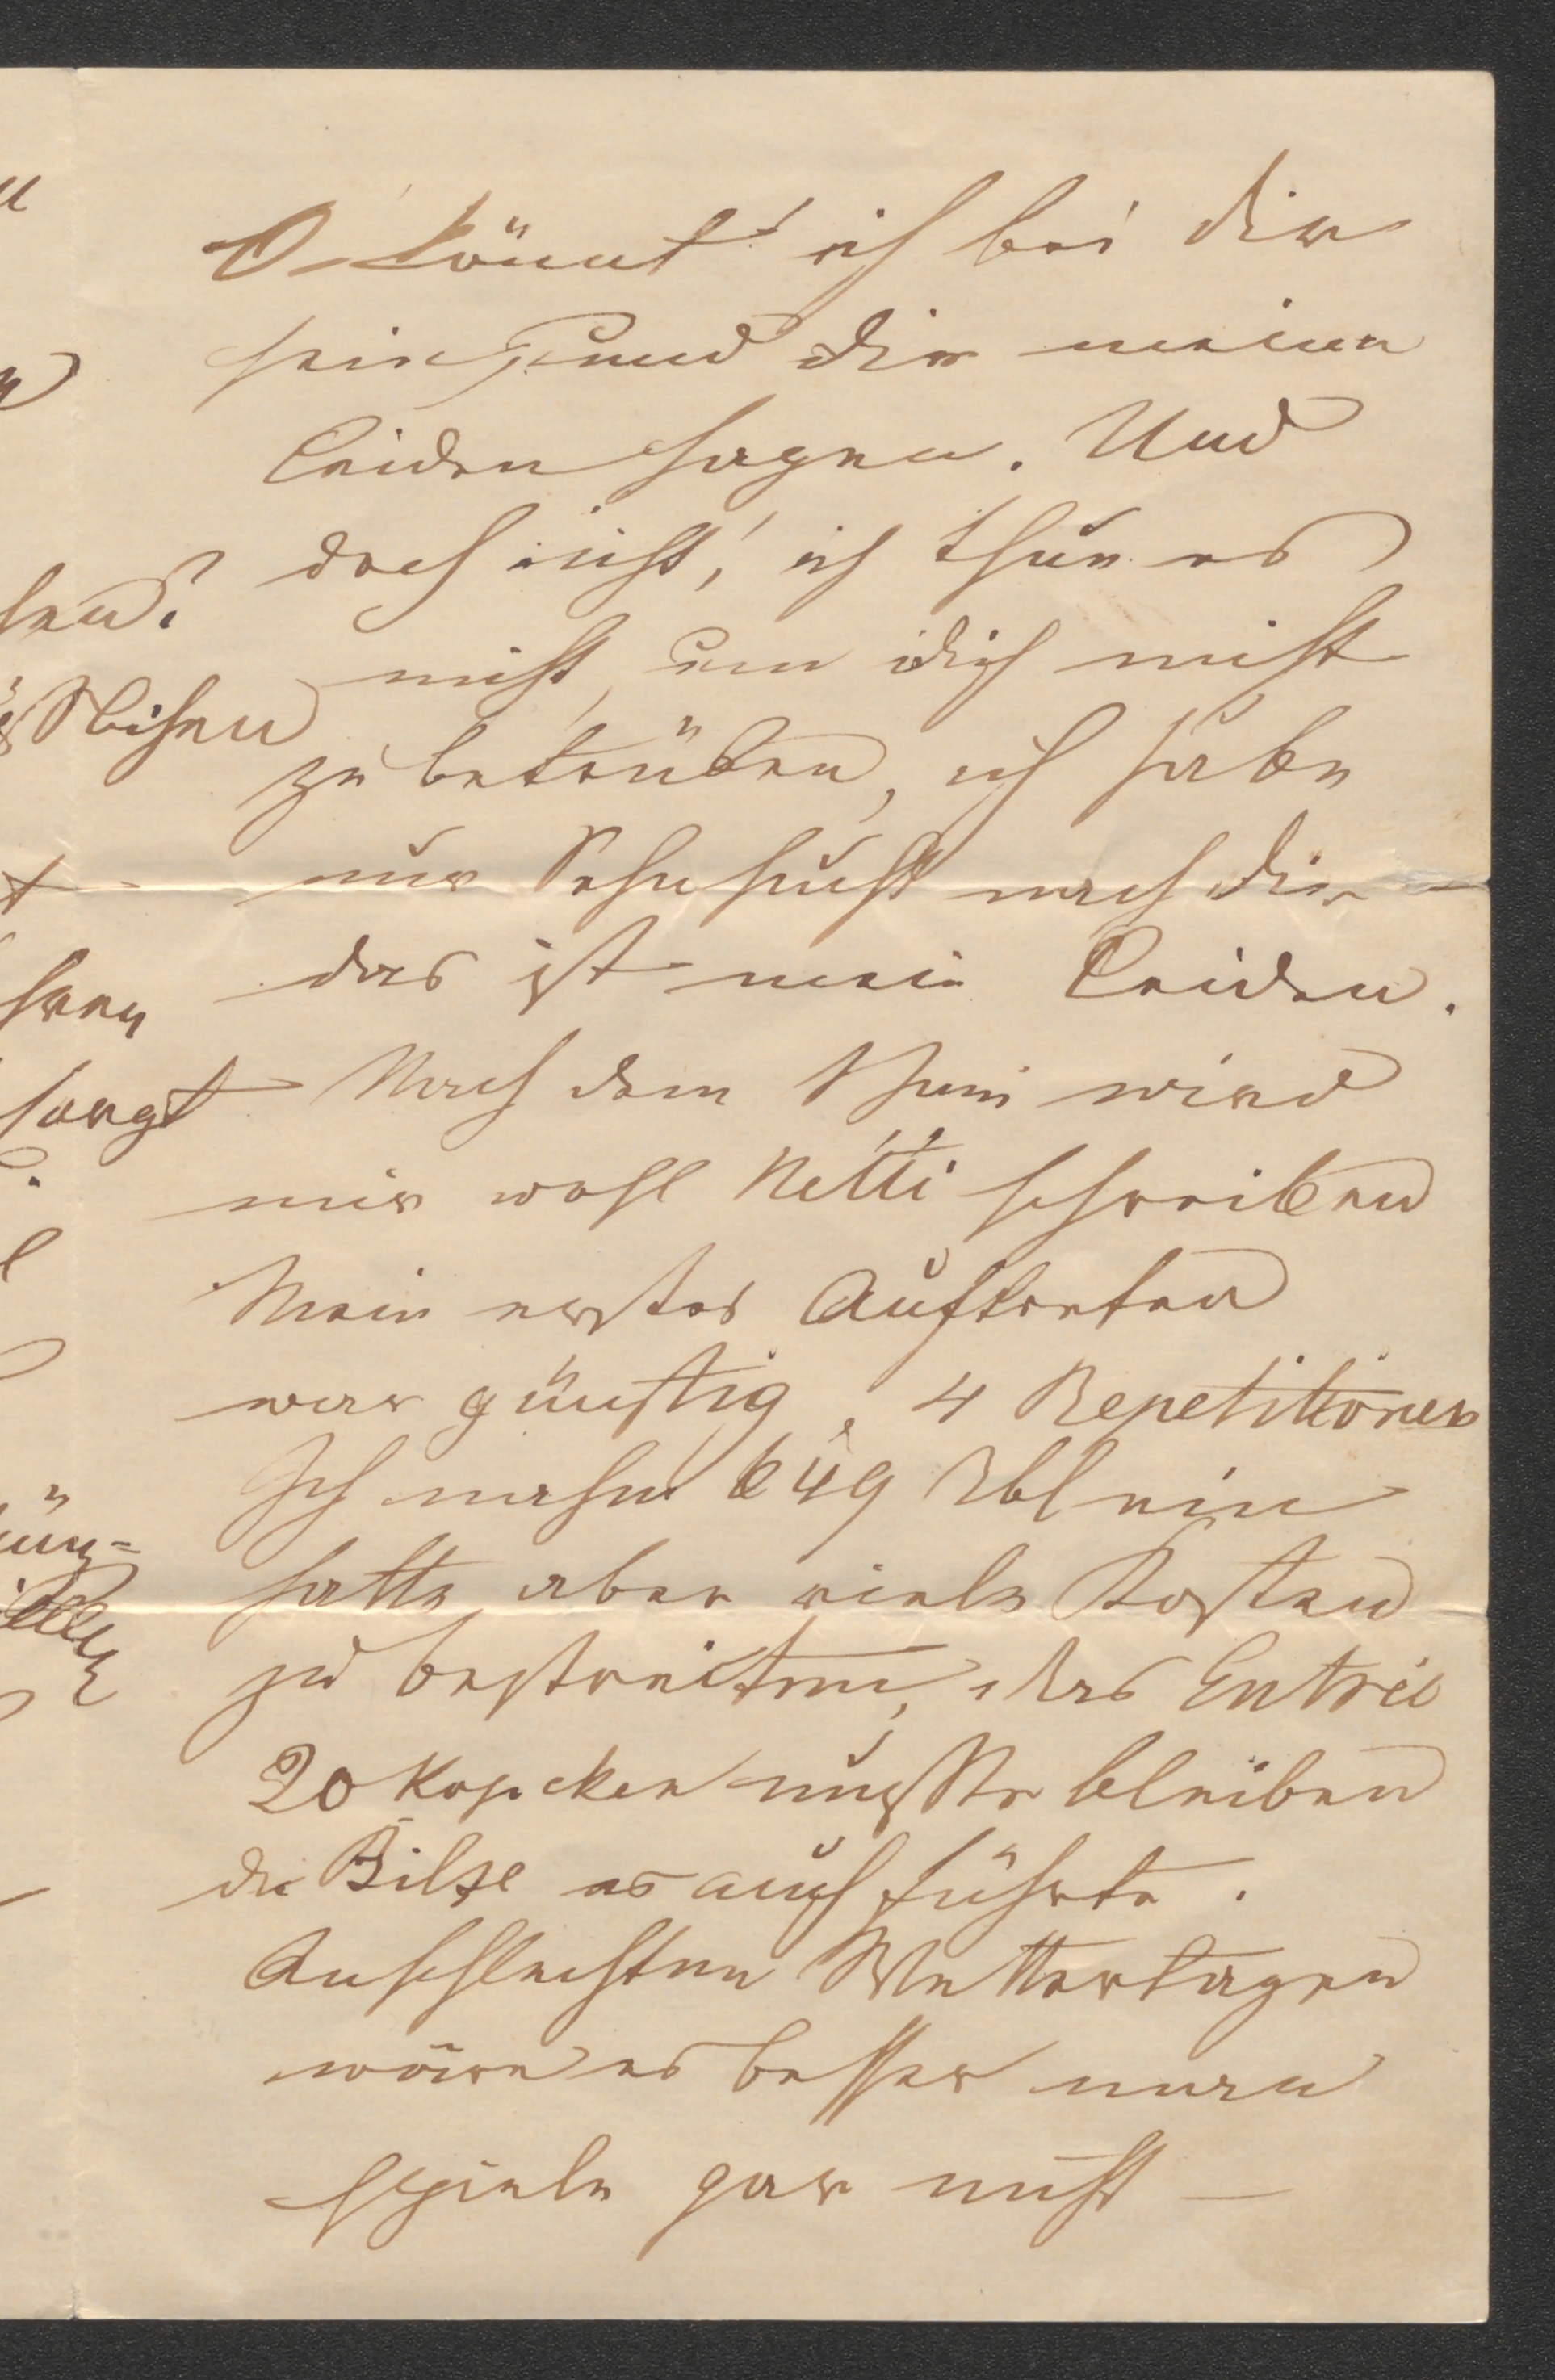 O könnt' ich bei dir
sein, und dir meine
Leiden sagen. Und
doch nicht, ich thue es
nicht, um dich nicht
zu betrüben, ich habe
nur Sehnsucht nach dir –
das ist mein Leiden.
Nach dem wird
mir wohl Netti schreiben
Mein erstes Auftreten
war günstig, 4 Repetitionen
Ich nahm 649 Rbl ein
hatte aber viele Kosten
zu bestreiten, das Entrée
20 Kopeken mußte bleiben
die Bilse es auch führte.
An schlechten Wettertagen
wäre es besser man
spiele gar nicht –